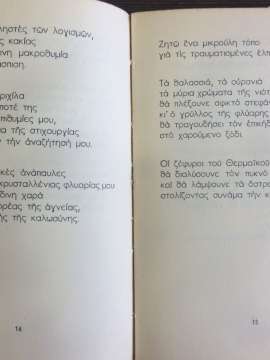 ληστὲς τῶν λογισμῶν,
ς κακίας
ένη μακροθυμία
άσπιση.
ριχίλα
ποτέ της
πιθυμίες μου,
ια τῆς στιχουργίας
ν τὴν ἀναζήτησή μου.
κὲς ἀνάπαυλες
κρυσταλλένιας φλυαρίας μου
δινη χαρὰ
ορέας τῆς ἁγνείας,
ῆς τῆς καλωσύνης.
14
Ζητῶ ἕνα μικρούλη τόπο
γιὰ τὶς τραυματισμένες ἐλπ
Τὰ θαλασσιά, τὰ οὐράνιά
τὰ μύρια χρώματα τῆς νιότ
θὰ πλέξουνε σφικτὸ στεφάν
κι' ὁ γρύλλος τῆς φλύαρης
θὰ τραγουδήσει τὸν ἐπικήδ
στὸ χαρούμενο ξόδι.
Οἱ ζέφυροι τοῦ Θερμαϊκοῦ
θὰ διαλύσουνε τὸν πυκνὸ
καὶ θὰ λάμψουνε τὰ ἄστρα
στολίζοντας συνάμα τὴν κ
15